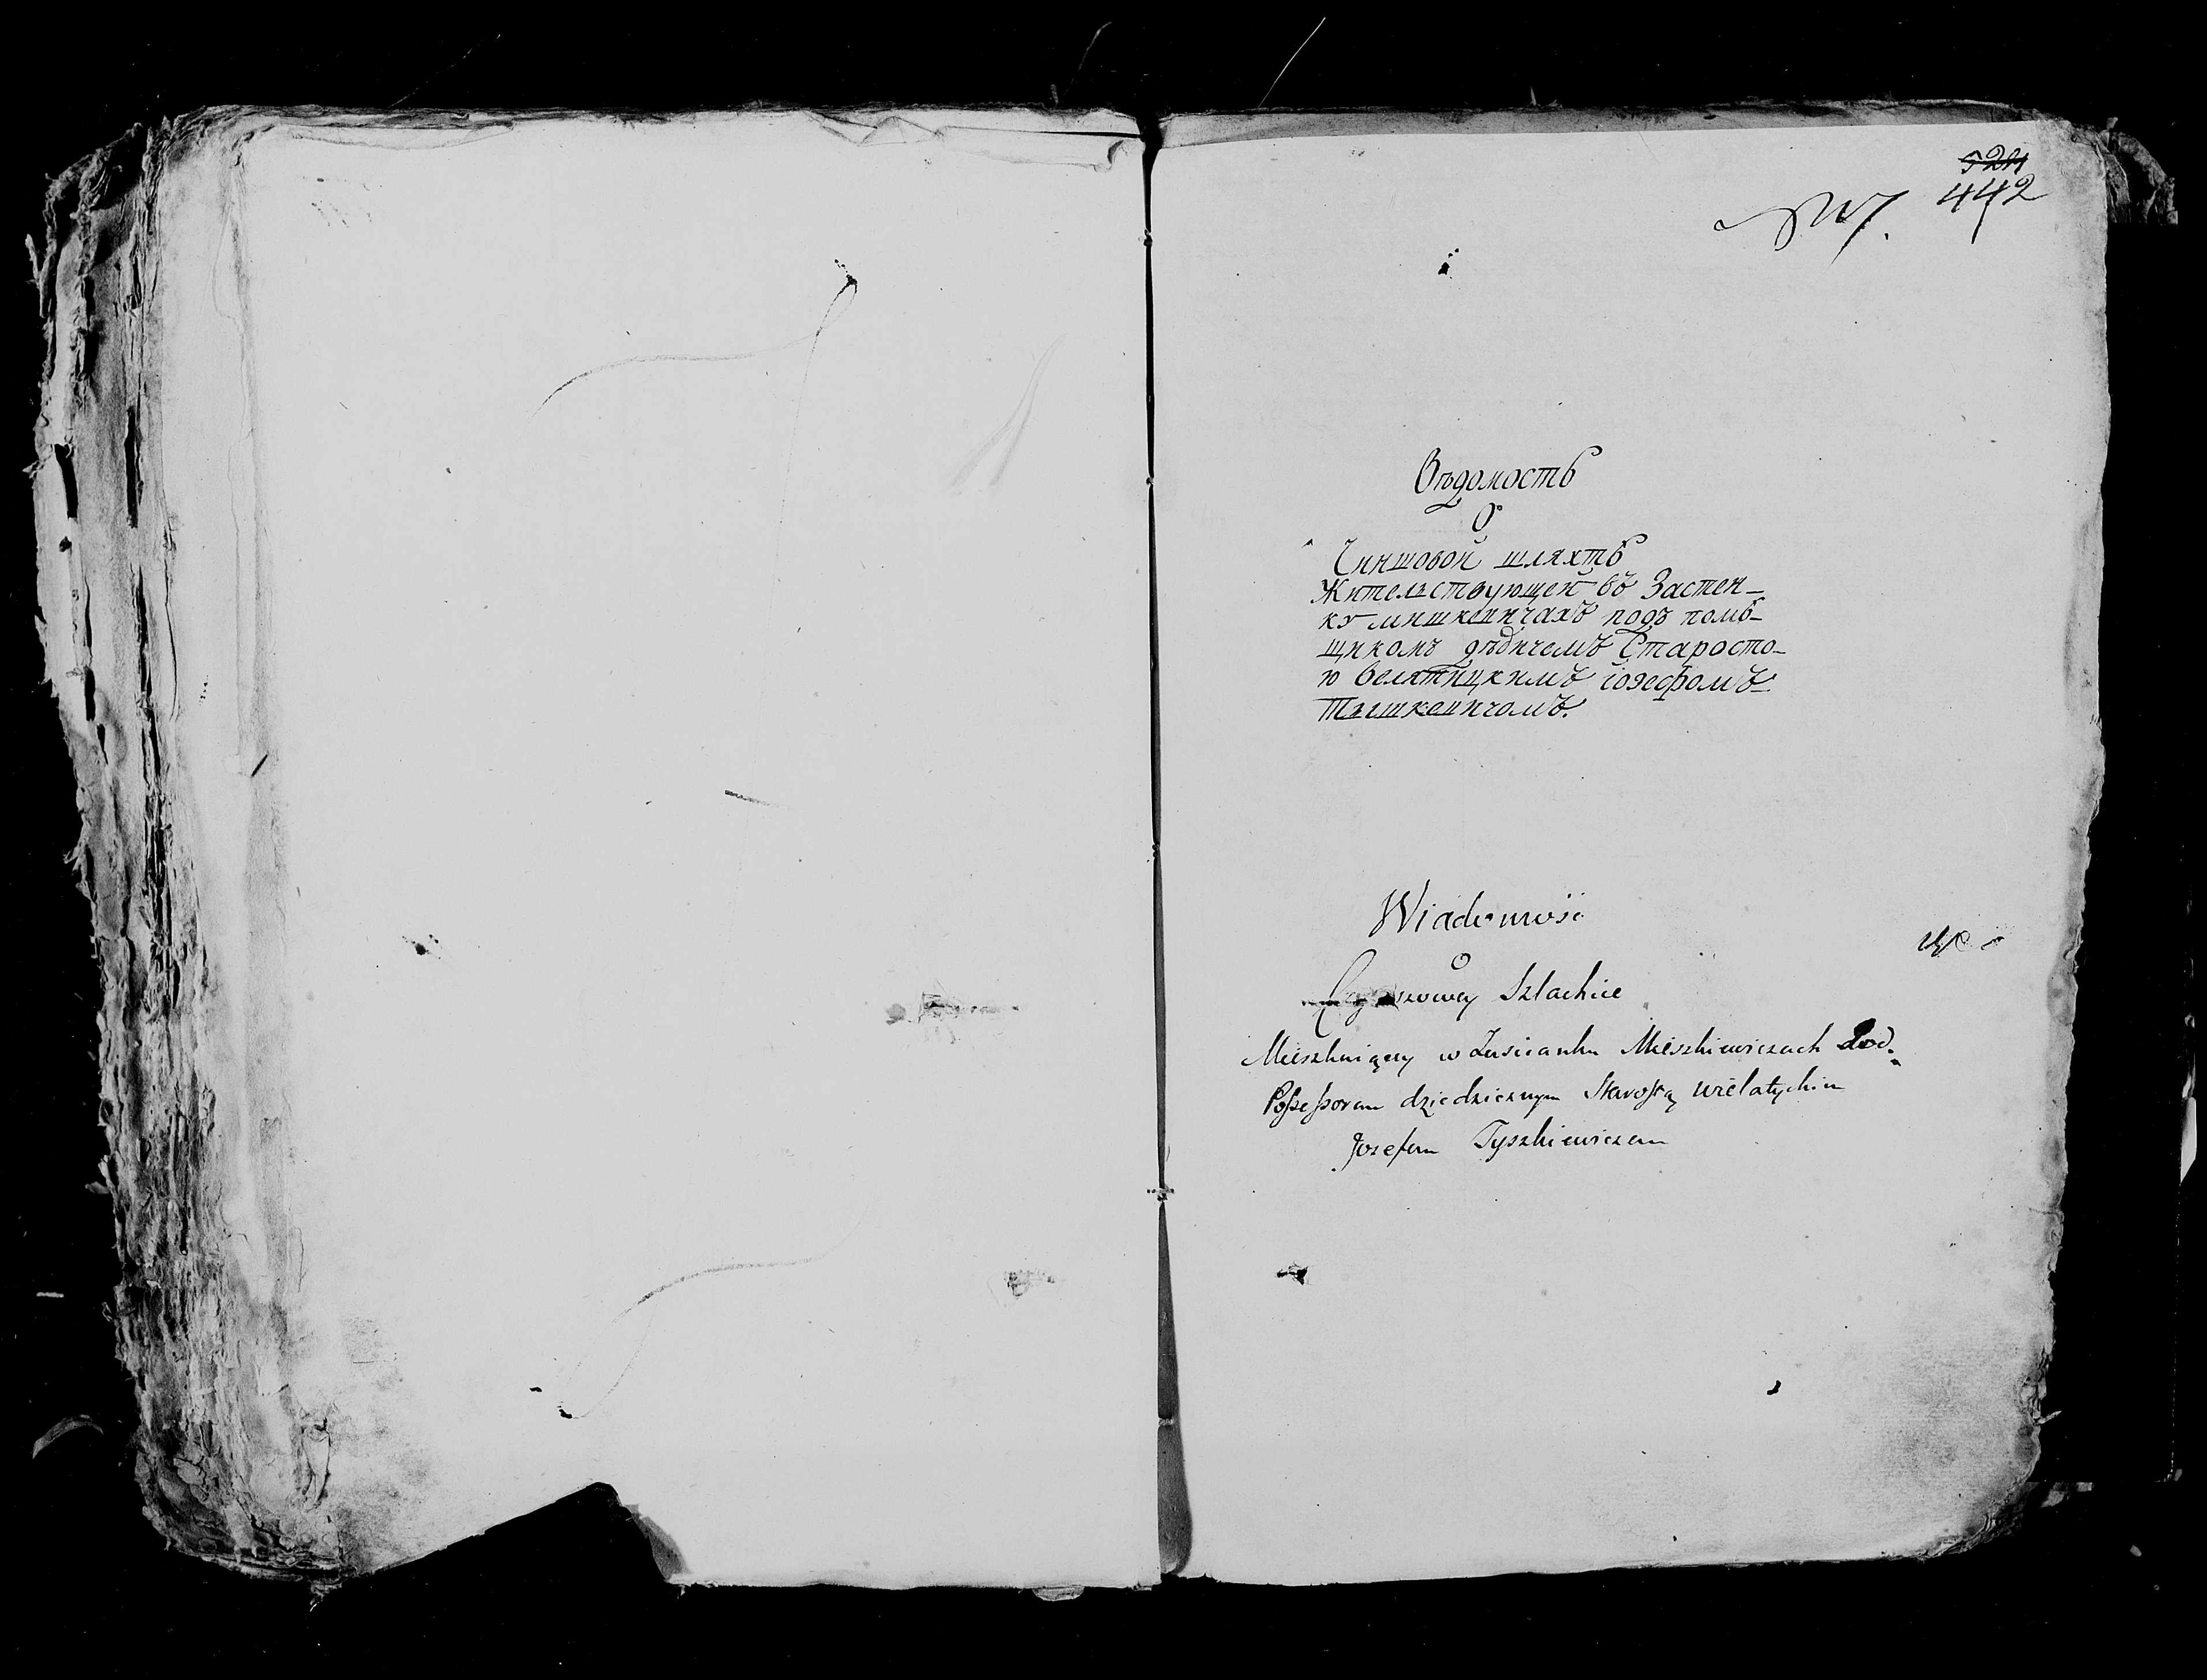 442
Вѣдомость
О
Чиншовой шляхтѣ
жительствующей въ Застен-
ку мишкевичахъ подъ помѣ-
щикомъ дѣдичемъ Старосто-
ю Велятицкимъ іозефомъ
Тышкевичомъ.
Wiadomość
O
Czynszowey Szlachcie
Mieszkaiącey w Zascianku Mieszkiewiczach Pod
Possessorem dziedzicznym Starostą wielatyckim
Jozefem Tyszkiewiczem